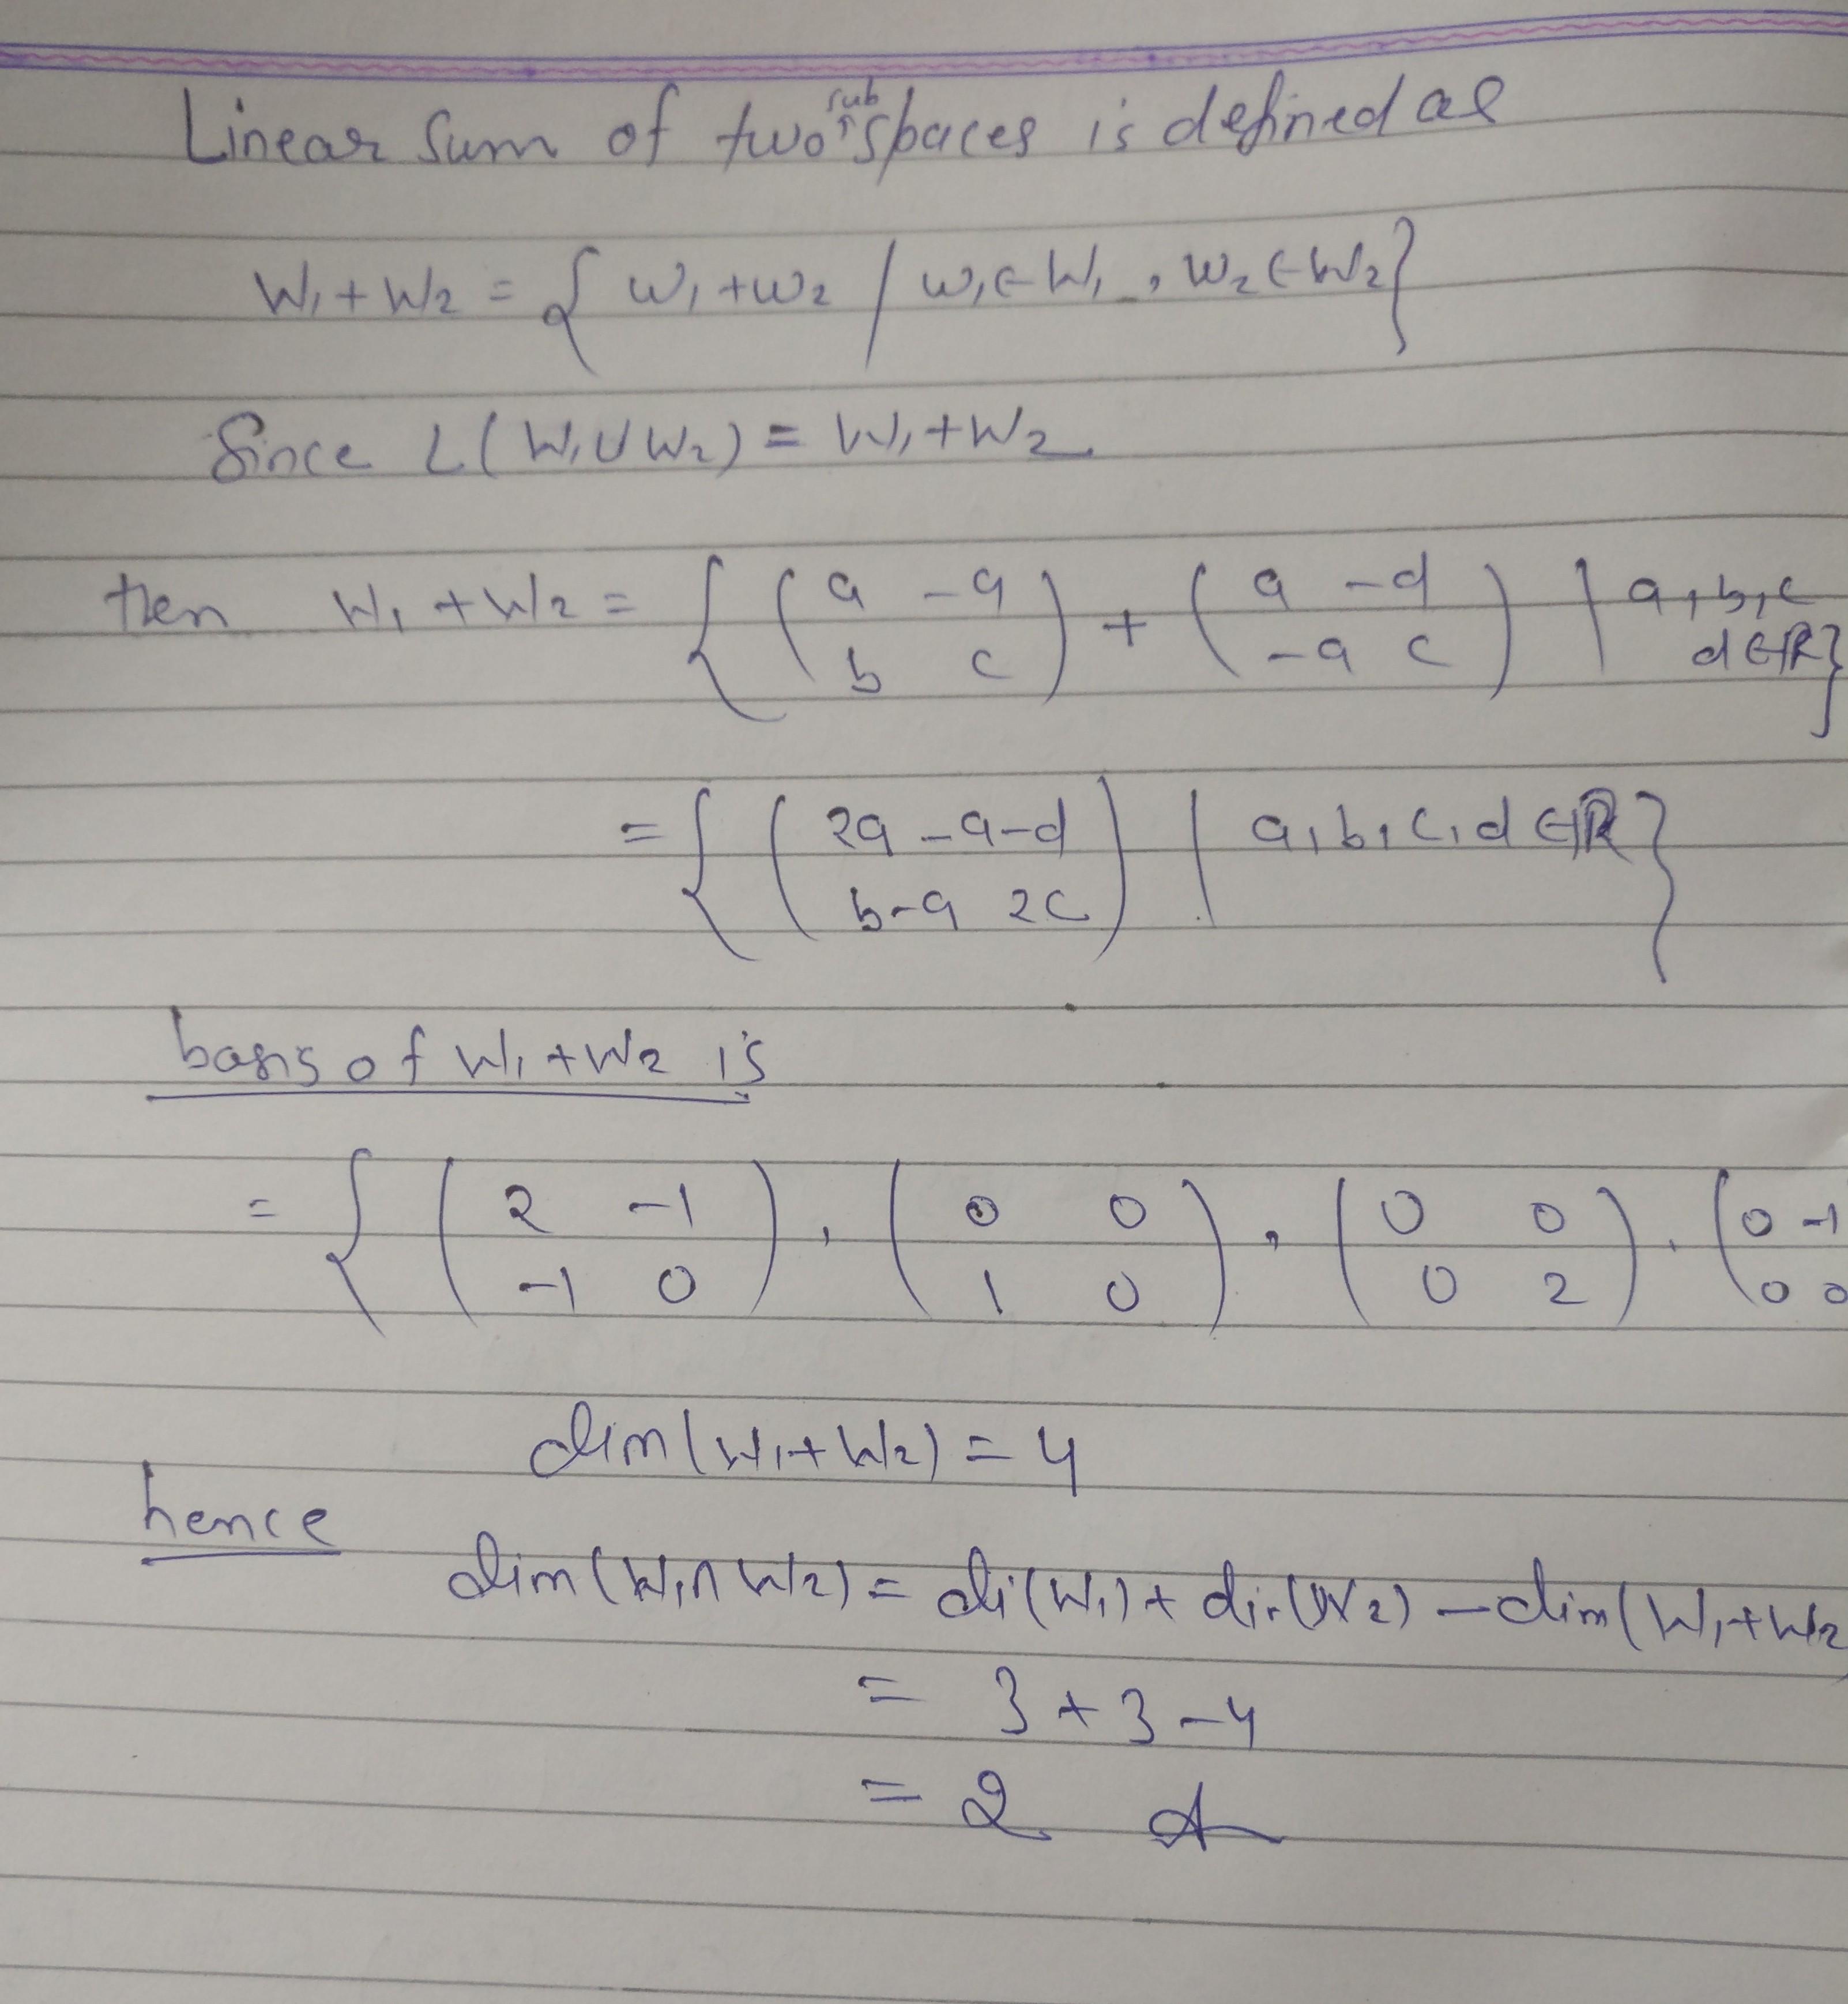 Linear Sum of two subspaces is defined as
W₁ + W₂ = { w₁ + w₂ / w₁ ∈ W₁ , w₂ ∈ W₂ }
Since L(W₁ ∪ W₂) = W₁ + W₂
then W₁ + W₂ = { ( a -a ; b c ) + ( a -d ; -a c ) | a, b, c d ∈ ℝ }
= { ( 2a -a-d ; b-a 2c ) | a, b, c, d ∈ ℝ }
basis of W₁ + W₂ is
= { ( 2 -1 ; -1 0 ) , ( 0 0 ; 1 0 ) , ( 0 0 ; 0 2 ) , ( 0 -1 ; 0 0
dim(W₁ + W₂) = 4
hence
dim(W₁ ∩ W₂) = di(W₁) + dir(W₂) - dim(W₁ + W₂)
= 3 + 3 - 4
= 2